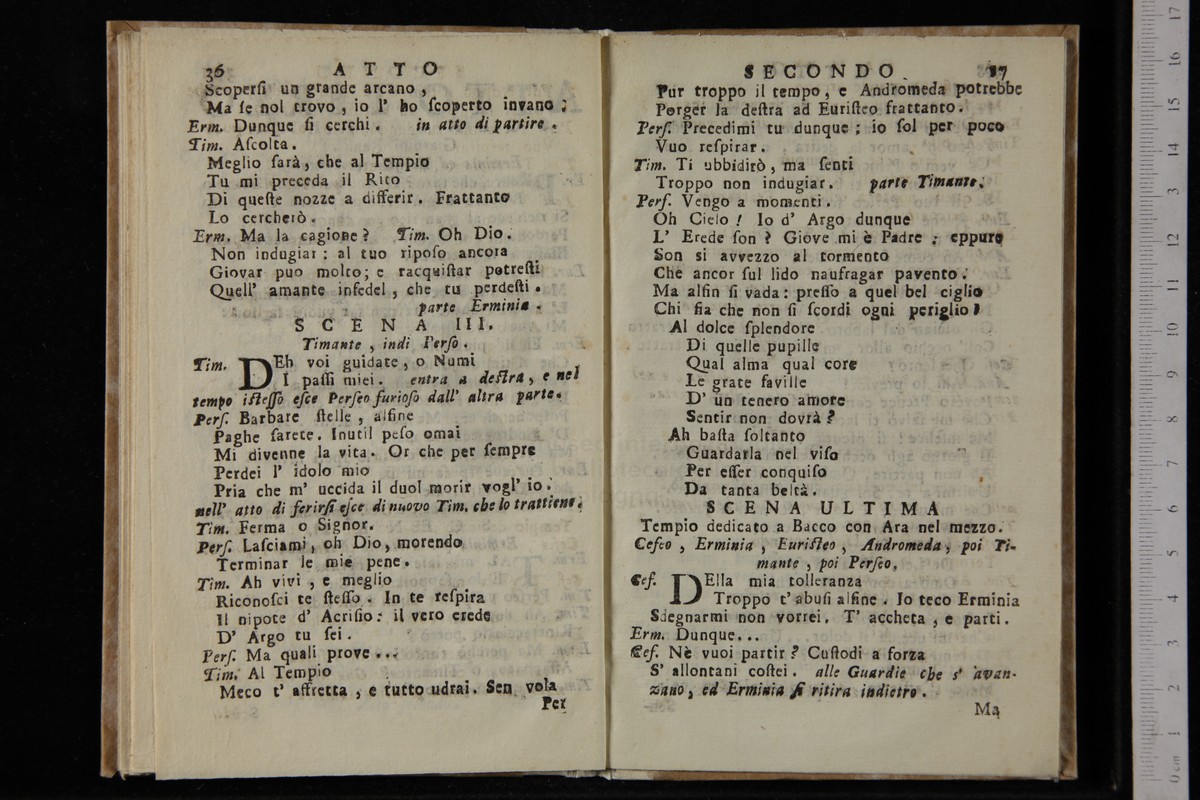 36 ATTO
Scopersi un grande arcano,
Ma se nol trovo, io l' ho scoperto invano;
Erm. Dunque si cerchi. in atto di partire.
Tim. Ascolta.
Meglio sarà, che al Tempio
Tu mi preceda il Rito
Di queste nozze a differir. Frattanto
Lo cercherò.
Erm. Ma la cagione? Tim. Oh Dio.
Non indugiar: al tuo riposo ancora
Giovar puo molto; e racquistar potresti
Quell' amante infedel, che tu perdesti.
parte Erminia.
SCENA III.
Timante, indi Perso.
Tim. DEh voi guidate, o Numi
I passi miei. entra a destra, e nel
tempo istesso esce Perseo furioso dall' altra parte.
Pers. Barbare stelle, alfine
Paghe sarete. Inutil peso omai
Mi divenne la vita. Or che per sempre
Perdei l' idolo mio
Pria che m' uccida il duol morir vogl' io.
nell' atto di ferirsi esce di nuovo Tim. che lo trattiene.
Tim. Ferma o Signor.
Pers. Lasciami, oh Dio, morendo
Terminar le mie pene.
Tim. Ah vivi, e meglio
Riconosci te stesso. In te respira
Il nipote d' Acrisio: il vero erede
D' Argo tu sei.
Pers. Ma quali prove...
Tim. Al Tempio
Meco t' affretta, e tutto udrai. Sen vola
Per
SECONDO. 37
Pur troppo il tempo, e Andromeda potrebbe
Porger la destra ad Euristeo frattanto.
Pers. Precedimi tu dunque; io sol per poco
Vuo respirar.
Tim. Ti ubbidirò, ma senti
Troppo non indugiar. parte Timante.
Pers. Vengo a momenti.
Oh Cielo! Io d' Argo dunque
L' Erede son? Giove mi è Padre; eppure
Son si avvezzo al tormento
Che ancor sul lido naufragar pavento.
Ma alfin si vada: presso a quel bel ciglio
Chi fia che non si scordi ogni periglio?
Al dolce splendore
Di quelle pupille
Qual alma qual core
Le grate faville
D' un tenero amore
Sentir non dovrà?
Ah basta soltanto
Guardarla nel viso
Per esser conquiso
Da tanta beltà.
SCENA ULTIMA
Tempio dedicato a Bacco con Ara nel mezzo.
Cefeo, Erminia, Euristeo, Andromeda, poi Ti-
mante, poi Perseo.
Cef. DElla mia tolleranza
Troppo t' abusi alfine. Io teco Erminia
Sdegnarmi non vorrei. T' accheta, e parti.
Erm. Dunque...
Cef. Nè vuoi partir? Custodi a forza
S' allontani costei. alle Guardie che s' avan-
zano, ed Erminia si ritira indietro.
Ma